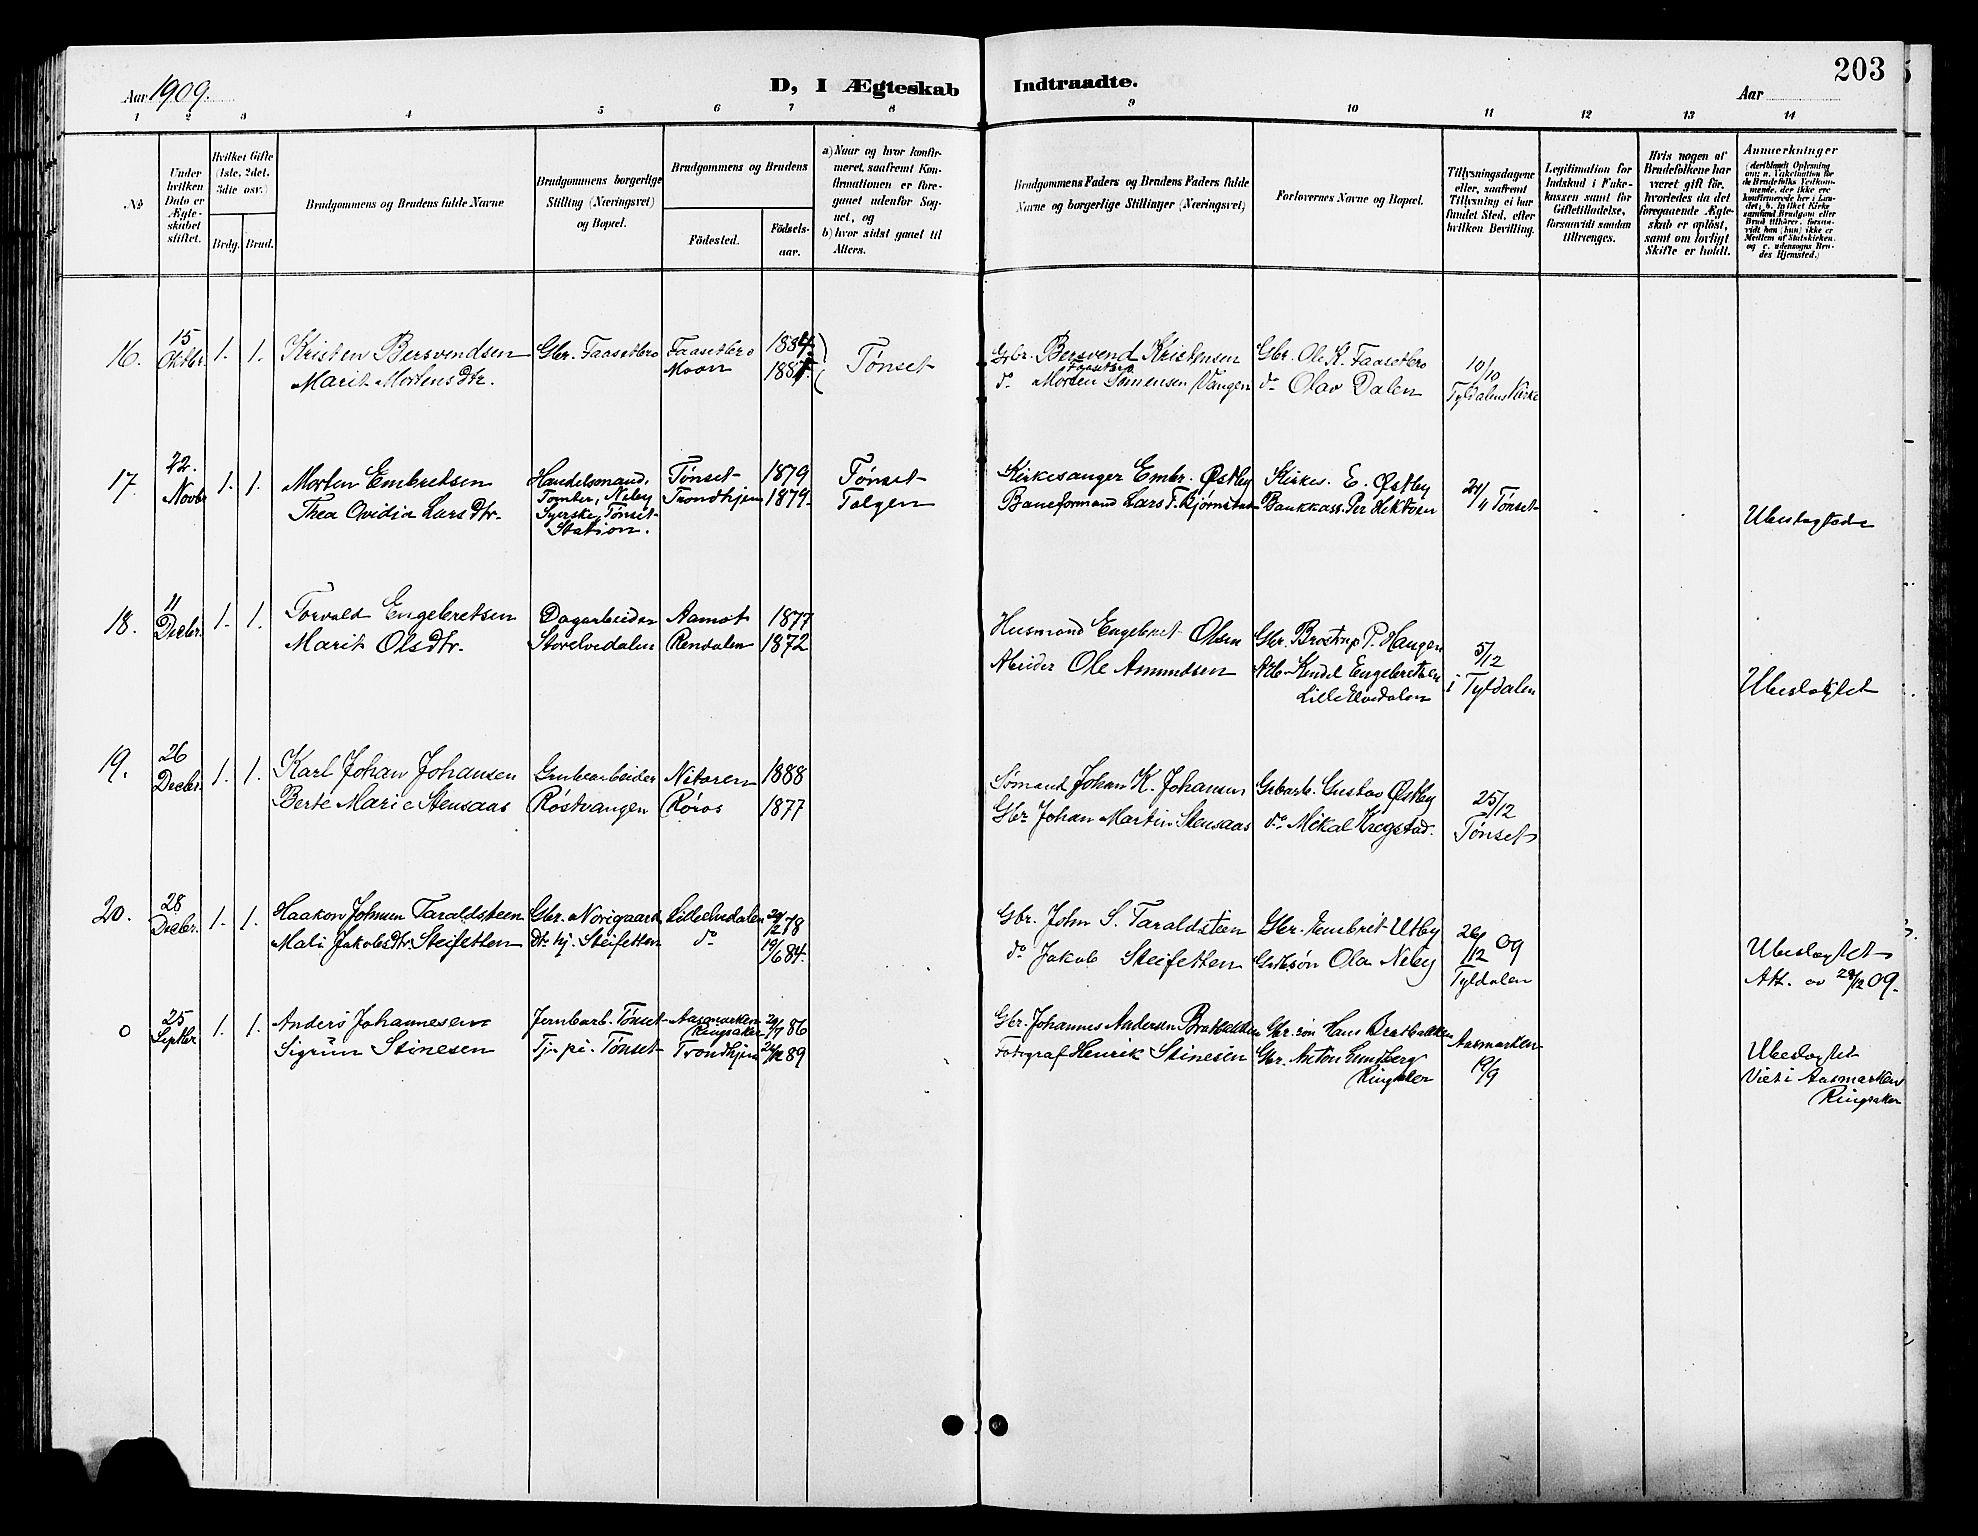 203
Aar 1909.
D, I Ægteskab Indtraadte.
Aar
1 2 3 4 5 6 7 8 9 10 11 12 13 14
No
Under hvilken Dato er Ægteskabet stiftet.
Hvilket Gifte (1ste, 2det, 3die osv.)
Brdg. Brud.
Brudgommens og Brudens fulde Navne
Brudgommens borgerlige Stilling (Næringsvei) og Bopæl.
Brudgommens og Brudens
Fødested. Fødselsaar.
a) Naar og hvor konfirmeret, saafremt Konfirmationen er foregaaet udenfor Sognet, og
b) hvor sidst gaaet til Alters.
Brudgommens Faders og Brudens Faders fulde Navne og borgerlige Stillinger (Næringsvei)
Forlovernes Navne og Bopæl.
Tillysningsdagene eller, saafremt Tillysning ei har fundet Sted, efter hvilken Bevilling.
Legitimation for Indskud i Enkekassen samt for Giftetilladelse, forsaavidt saadan tiltrænges.
Hvis nogen af Brudefolkene har været gift før, hvorledes da det foregaaende Ægteskab er opløst, samt om lovligt Skifte er holdt.
Anmærkninger
(deriblandt Oplysning om: a. Vakcination for de Brudefolks Vedkommende, der ikke ere konfirmerede her i Landet; b. hvilket Kirkesamfund Brudgom eller Brud tilhører, forsaavidt han (hun) ikke er Medlem af Statskirken, og c. udensogns Brudes Hjemsted.)
16. 15 Oktbr. 1. 1. Kristen Bersvendsen Gbr. Faasetbro Faasetbro 1884 Tønset Gbr. Bersvend Kristensen Faasetbro Gbr. Ole K. Faasetbro 10/10
Marit Mortensdtr. Moan do Morten Simensen Vangen do Olav Dalen Tyldalens Kirke
17. 22. Novbr 1. 1. Morten Embretsen Handelsmand, Tønset 1879 Tønset Kirkesanger Embr. Østby Kirkes. E. Østby 21/11 Tønset
Thea Ovidia Larsdtr. Trondhjem 1879. Tolgen Baneformand Lars T. Bjørnstad Bankkass. Per Hektoen
Syerske, Tønset Station.
Ubeslægtede
18. 11 Decbr. 1. 1. Torvald Engebretsen Dagarbeider Aamot 1877 Husmand Engebret Olsen Gbr. Brostrup P. Haugen 5/12
Marit Olsdtr. Storelvedalen Rendalen 1872 Arbeider Ole Asmundsen Arb. Kendel Engebretsen i Tyldalen
Lille Elvedalen
Ubeslægtet
19. 26 Decbr. 1. 1. Karl Johan Johansen Grubearbeider 1888 Sømand Johan K. Johansen Grbarb. Gustav Østby 25/12
Berte Marie Stensaas Røstvangen Røros 1877 Gbr Johan Martin Stensaas do Mikal Kregstad. Tønset
20. 28 Decbr. 1. 1. Haakon Johnsen Taraldsteen Gbr. Norigaard Lilleelvedalen 29/12 78 Gbr. John S. Taraldsteen Gbr. Embret Utby 26/12 09
Mali Jakobsdtr. Steifetten Dtr. hj. Steifetten do 19/6 84. do Jakob Steifetten Grdbrsøn Ola Neby Tyldalen
Ubeslægtet
Att. av 28/12 09.
0 25 Septbr 1. 1. Anders Johannesen Jernbarb. Tønset Aasmarken Ringsaker 86 Gbr. Johannes Andersen Bratbakken Gbr. søn Hans Bratbakken Aasmarken
Sigrun Stinesen Tj. pi. Tønset Trondhjem 89 Fotograf Henrik Stinesen Gbr. Anton Lundberg 19/9
Ringsaker
Ubeslægtet
Viet i Aasmarken
Ringsaker